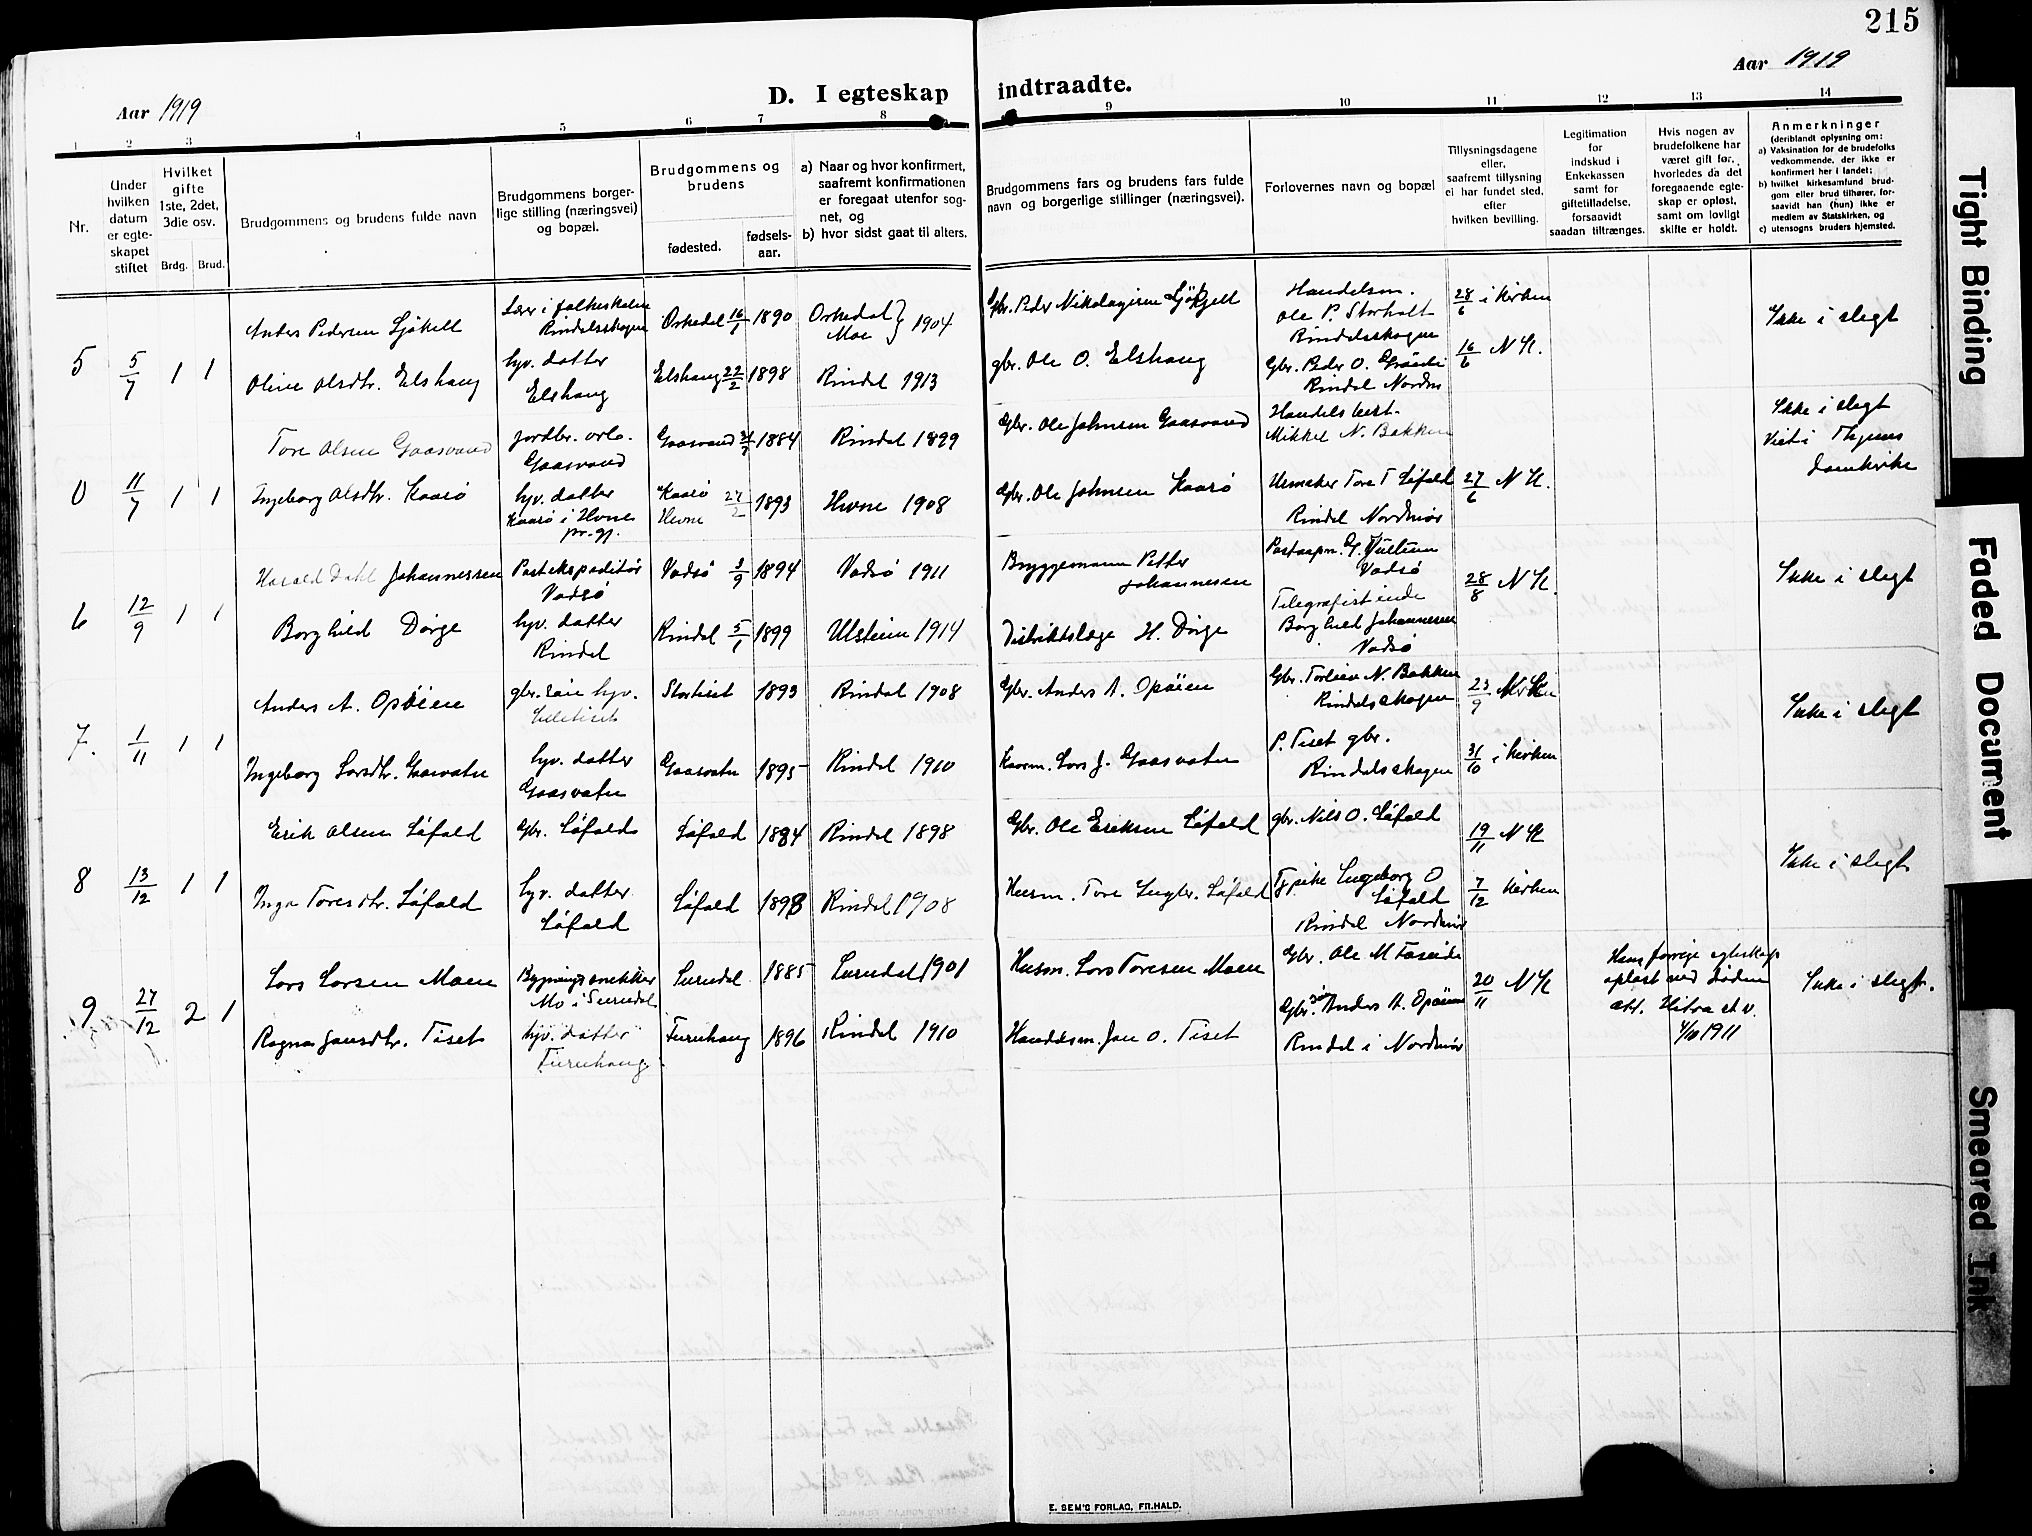 215
Aar 1919
Aar 1919
D. I egteskap indtraadte.
1 2 3 4 5 6 7 8 9 10 11 12 13 14
Nr.
Under
hvilken
datum
er egte-
skapet
stiftet
Hvilket
gifte
1ste, 2det,
3die osv.
Brdg. Brud.
Brudgommens og brudens fulde navn
Brudgommens borger-
lige stilling (næringsvei)
og bopæl.
Brudgommens og
brudens
fødested.
fødsels-
aar.
a) Naar og hvor konfirmert,
saafremt konfirmationen
er foregaat utenfor sog-
net, og
b) hvor sidst gaat til alters.
Brudgommens fars og brudens fars fulde
navn og borgerlige stillinger (næringsvei).
Forlovernes navn og bopæl
Tillysningsdagene
eller,
saafremt tillysning
ei har fundet sted,
efter
hvilken bevilling.
Legitimation
for
indskud i
Enkekassen
samt for
giftetilladelse,
forsaavidt
saadan tiltrænges.
Hvis nogen av
brudefolkene har
været gift før,
hvorledes da det
foregaaende egte-
skap er opløst,
samt om lovligt
skifte er holdt.
Anmerkninger
(deriblandt oplysning om:
a) Vaksination for de brudefolks
vedkommende, der ikke er
konfirmert her i landet;
b) hvilket kirkesamfund brud-
gom eller brud tilhører, for-
saavidt han (hun) ikke er
medlem av Statskirken, og
c) utensogns bruders hjemsted.
5 5/7 1 1
Anders Pedersen Ljøkell
Lærer i folkeskolen
Rindalsskogen
Orkedal 16/1 1890
Orkedal } 1904
Moe
Gbr. Peder Nikolayisen Ljøkjell
Handelsm.
Ole P. Storholt
Rindalsskogen
28/6 i kirken
Ikke i slegt
Oline Olsdtr. Elshaug
hv. datter
Elshaug
Elshaug 22/2 1898
Rindal 1913
gbr. Ole O. Elshaug
Gbr. Peder O.
Rindal Nordm
16/6 N K.
0 11/7 1 1
Tore Olsen Gaasvand
jordbr. arb.
Gaasvand
Gaasvand 1884
Rindal 1899
Gbr. Ole Johnsen Gaasvand
Handelsbest.
Mikkel N. Bakken
Ikke i slegt
Viet i Thjems
domkirke
Ingeborg Olsdtr. Kaarø
hv. datter
Kaarø i Hevne
pr.gj.
Kaarø
Hevne 27/2 1893
Hevne 1908
Gbr. Ole Johnsen Kaarø
Urmaker Tore T Løfald
Rindal Nordmør
27/6 N K.
6 12/9 1 1
Harald Dahl Johannessen
Postekspeditør
Vadsø
Vadsø 3/9 1894
Vadsø 1911
Bryggemann Petter
Johannesen
Vadsø
28/8 N K.
Ikke i slegt
Borghild Dørge
hv. datter
Rindal
Rindal 5/1 1899
Ulstein 1914
Distriktslæge H. Dørge
Telegrafistinde
Borghild Johannesen
Vadsø
7. 1/11 1 1
Anders A. Opøien
gbr. søn hv.
Stortiset 1893
Rindal 1908
Gbr. Anders A. Opøien
Gbr. Torleiv N. Bakken
Rindalsskogen
23/9
Ikke i slegt
Ingeborg Larsdtr. Gaasvatn
hv. datter
Gaasvatn
Gaasvatn 1895
Rindal 1910
Kaarm. Lars J. Gaasvatn
P. Tiset gbr.
Rindalsskogen
31/10 i kirken
8 13/12 1 1
Erik Olsen Løfald
Gbr. Løfald
Løfald 1884
Rindal 1898
Gbr. Ole Eriksen Løfald
gbr. Nils O. Løfald
19/11 N K
Ikke i slegt
Inga Toresdtr. Løfald
hv. datter
Løfald
Løfald 1893
Rindal 1908
Husm. Tore Ingbr. Løfald
Tjpike Ingeborg O
Løfald
Rindal Nordmør
7/12 kirken
9 27/12 2 1
Lars Larsen Moen
Bygningssnekker
Mo i Surndal
Surndal 1885
Surndal 1901
Husm. Lars Toresen Moen
Gbr. Ole M
20/11 N K
Hans forrige egteskap
opløst ved døden
att. Hitra
4/10 1911
Ikke i slegt.
Ragna Jonsdtr. Tiset
hv. datter
Furuhaug
Furuhaug 1896
Rindal 1910
Handelsm. Jon O. Tiset
Gbr. søn Anders A. Opøien
Rindal i Nordmør
E. SEM'S FORLAG, FR.HALD.
Tight Binding
Faded Document
Smeared Ink